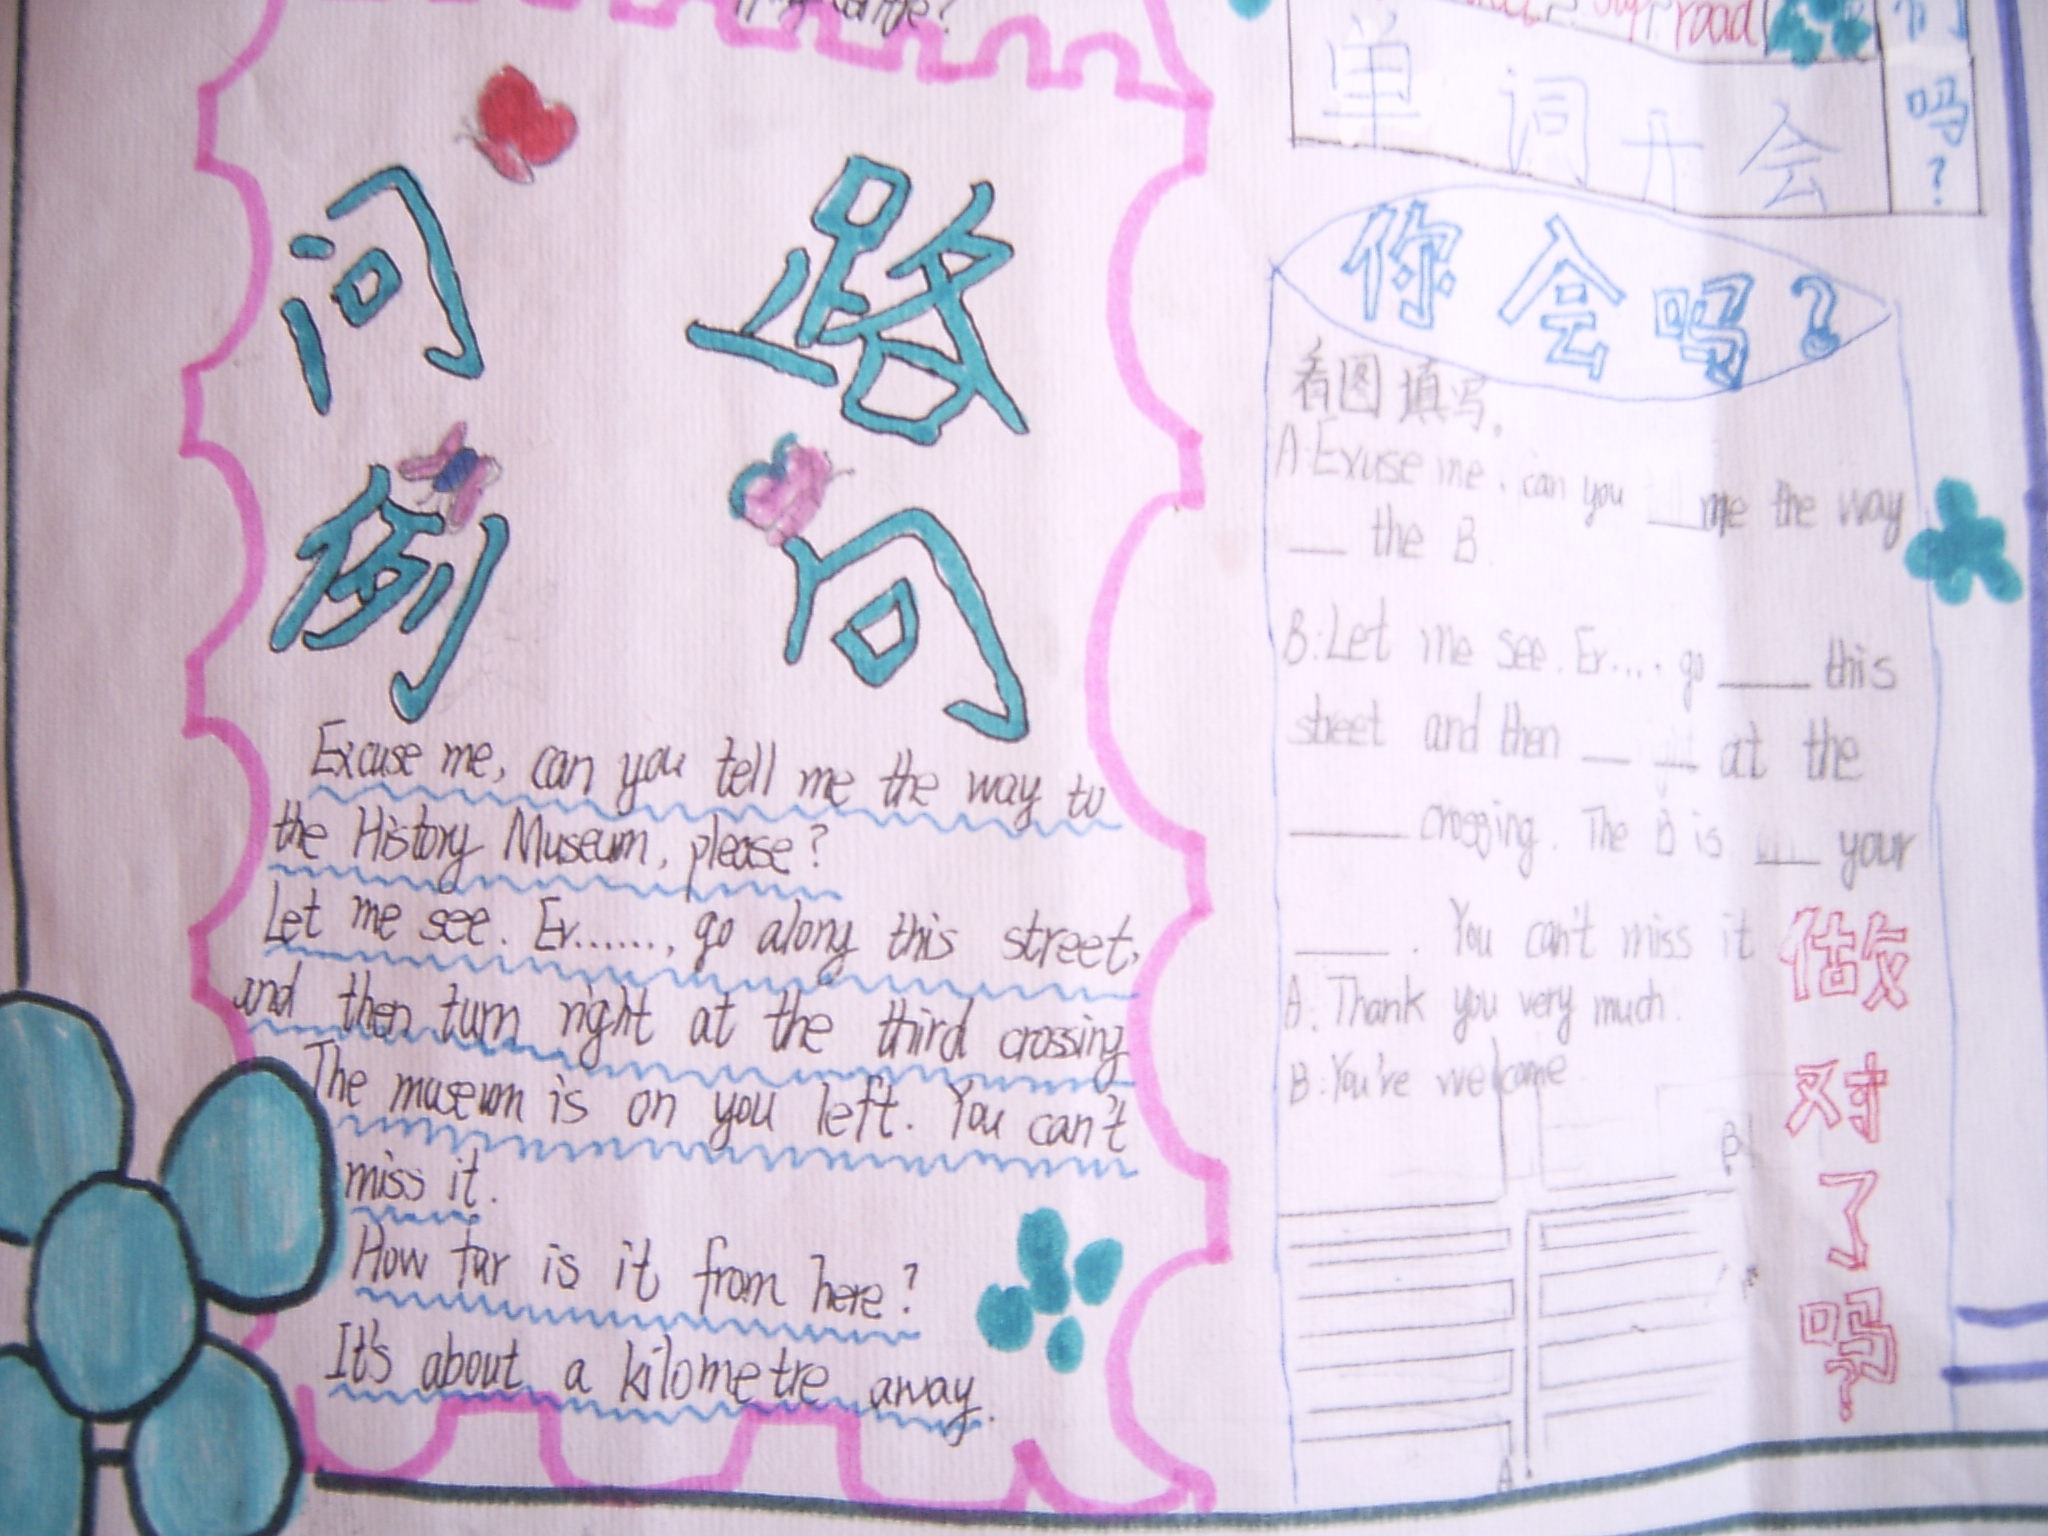 road
单词开会
吗?
问路
例句
Excuse me, can you tell me the way to
the History Museum, please?
Let me see. Er......, go along this street,
and then turn right at the third crossing
The museum is on you left. You can't
miss it.
How far is it from here?
It's about a kilometre away.
你会吗?
看图填写.
A: Exuse me, can you ___ me the way
___ the B.
B: Let me see. Er.... go ___ this
street and then ___ ___ at the
___ crossing. The B is ___ your
___. You can't miss it
A: Thank you very much.
B: You're welcome
B
A
做对了吗?